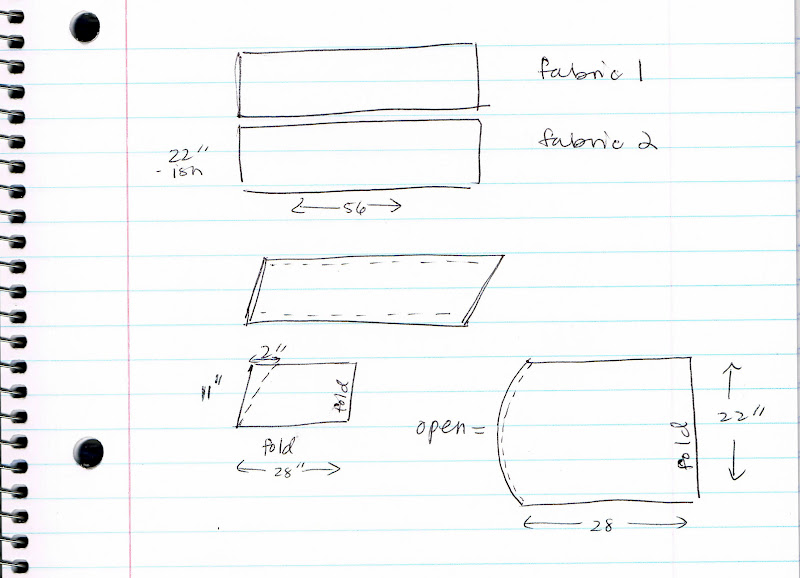 fabric 1
fabric 2
22"
-ish
56
2"
11"
fold
fold
28"
open =
fold
22"
28